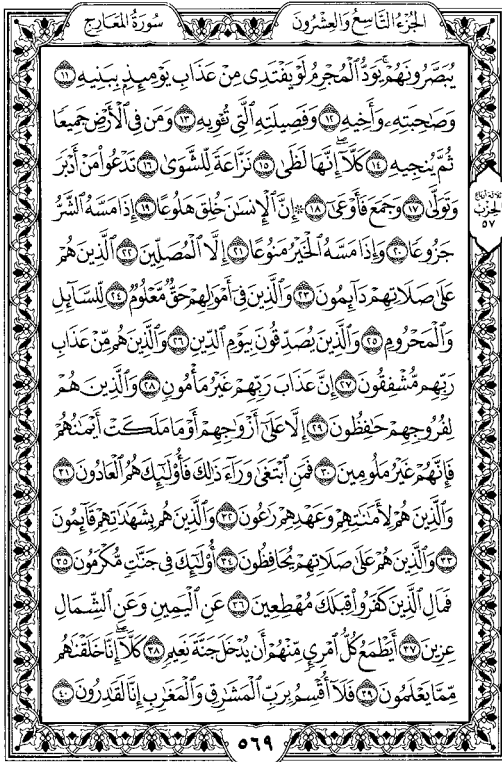 الجزء التاسع والعشرون
سورة المعارج
يُبَصَّرُونَهُمْ يَوَدُّ ٱلْمُجْرِمُ لَوْ يَفْتَدِى مِنْ عَذَابِ يَوْمِئِذٍۭ بِبَنِيهِ ١١
وَصَٰحِبَتِهِۦ وَأَخِيهِ ١٢ وَفَصِيلَتِهِ ٱلَّتِى تُـْٔوِيهِ ١٣ وَمَن فِى ٱلْأَرْضِ جَمِيعًا
ثُمَّ يُنجِيهِ ١٤ كَلَّآ إِنَّهَا لَظَىٰ ١٥ نَزَّاعَةً لِّلشَّوَىٰ ١٦ تَدْعُوا۟ مَنْ أَدْبَرَ
وَتَوَلَّىٰ ١٧ وَجَمَعَ فَأَوْعَىٰٓ ١٨ ۞ إِنَّ ٱلْإِنسَٰنَ خُلِقَ هَلُوعًا ١٩ إِذَا مَسَّهُ ٱلشَّرُّ
جَزُوعًا ٢٠ وَإِذَا مَسَّهُ ٱلْخَيْرُ مَنُوعًا ٢١ إِلَّا ٱلْمُصَلِّينَ ٢٢ ٱلَّذِينَ هُمْ
عَلَىٰ صَلَاتِهِمْ دَآئِمُونَ ٢٣ وَٱلَّذِينَ فِىٓ أَمْوَٰلِهِمْ حَقٌّ مَّعْلُومٌ ٢٤ لِّلسَّآئِلِ
وَٱلْمَحْرُومِ ٢٥ وَٱلَّذِينَ يُصَدِّقُونَ بِيَوْمِ ٱلدِّينِ ٢٦ وَٱلَّذِينَ هُم مِّنْ عَذَابِ
رَبِّهِم مُّشْفِقُونَ ٢٧ إِنَّ عَذَابَ رَبِّهِمْ غَيْرُ مَأْمُونٍ ٢٨ وَٱلَّذِينَ هُمْ
لِفُرُوجِهِمْ حَٰفِظُونَ ٢٩ إِلَّا عَلَىٰٓ أَزْوَٰجِهِمْ أَوْ مَا مَلَكَتْ أَيْمَٰنُهُمْ
فَإِنَّهُمْ غَيْرُ مَلُومِينَ ٣٠ فَمَنِ ٱبْتَغَىٰ وَرَآءَ ذَٰلِكَ فَأُو۟لَٰٓئِكَ هُمُ ٱلْعَادُونَ ٣١
وَٱلَّذِينَ هُمْ لِأَمَٰنَٰتِهِمْ وَعَهْدِهِمْ رَٰعُونَ ٣٢ وَٱلَّذِينَ هُم بِشَهَٰدَٰتِهِمْ قَآئِمُونَ
٣٣ وَٱلَّذِينَ هُمْ عَلَىٰ صَلَاتِهِمْ يُحَافِظُونَ ٣٤ أُو۟لَٰٓئِكَ فِى جَنَّٰتٍ مُّكْرَمُونَ ٣٥
فَمَالِ ٱلَّذِينَ كَفَرُوا۟ قِبَلَكَ مُهْطِعِينَ ٣٦ عَنِ ٱلْيَمِينِ وَعَنِ ٱلشِّمَالِ
عِزِينَ ٣٧ أَيَطْمَعُ كُلُّ ٱمْرِئٍ مِّنْهُمْ أَن يُدْخَلَ جَنَّةَ نَعِيمٍ ٣٨ كَلَّآ إِنَّا خَلَقْنَٰهُم
مِّمَّا يَعْلَمُونَ ٣٩ فَلَآ أُقْسِمُ بِرَبِّ ٱلْمَشَٰرِقِ وَٱلْمَغَٰرِبِ إِنَّا لَقَٰدِرُونَ ٤٠
الحزب
٥٧
٥٦٩